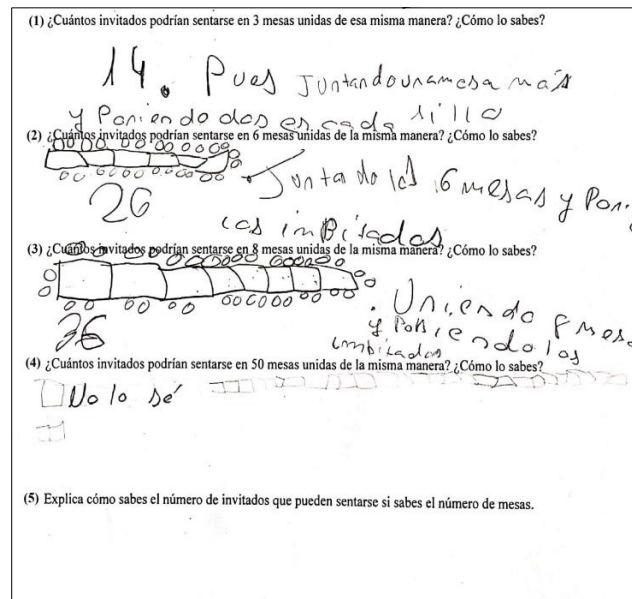 (1) ¿Cuántos invitados podrían sentarse en 3 mesas unidas de esa misma manera? ¿Cómo lo sabes?
14. Pues Juntando una mesa más
y Poniendo dos en cada silla
(2) ¿Cuántos invitados podrían sentarse en 6 mesas unidas de la misma manera? ¿Cómo lo sabes?
Juntado las 6 mesas y Poni.
26
los imBitados
(3) ¿Cuántos invitados podrían sentarse en 8 mesas unidas de la misma manera? ¿Cómo lo sabes?
Uniendo 8 mesa
36
y Poniendo los
imbitados
(4) ¿Cuántos invitados podrían sentarse en 50 mesas unidas de la misma manera? ¿Cómo lo sabes?
No lo sé
(5) Explica cómo sabes el número de invitados que pueden sentarse si sabes el número de mesas.